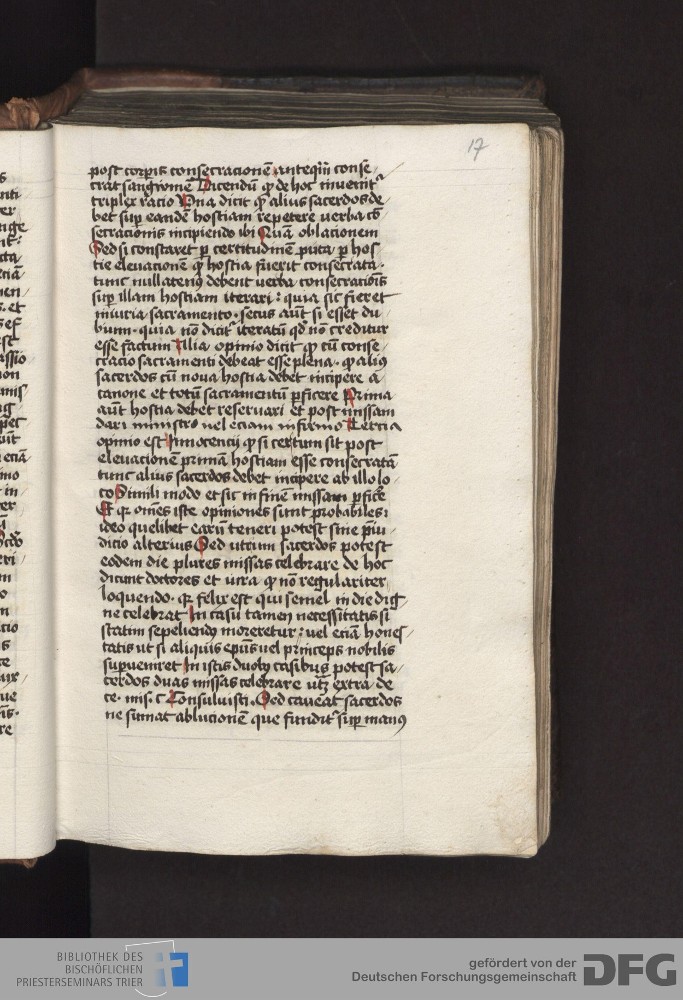 17
post corpis consecracionē antequā conse
crat sanguinē Dicendū qͥ de hoc inuenitᷣ
triplex racio Una dicit qͥ alius sacerdos de
bet sup eandē hostiam repetere uerba cō
secracionis incipiendo ibi Quam oblacionem
Sed si constaret p certitudinē puta p hos
tie eleuacionē qͥ hostia fuerit consecrata
tunc nullatenus debent uerba consecraciōis
sup illam hostiam iterari : quia sic fieret
iniuria sacramento . secus aūt si esset du
bium . quia nō dicitᷣ iteratū qd nō creditur
esse factum Alia opinio dicit qͥ cū conse
cracio sacramenti debeat esse plena . qͥ alius
sacerdos cū noua hostia debet incipere a
canone et totū sacramentū pficere Prima
aūt hostia debet reseruari et post missam
dari ministro uel eciam infirmo Tercia
opinio est Innocencij qͥ si certum sit post
eleuacionē primam hostiam esse consecratā
tunc alius sacerdos debet incipere ab illo lo
co Simili modo et sic in finē missam pficēre
Et qr omēs iste opiniones sunt probabiles :
ideo quelibet earū teneri potest sine p̄iu
dicio alterius Sed utrum sacerdos potest
eodem die plures missas celebrare de hoc
dicunt doctores et iura qͥ nō regulariter
loquendo . qr felix est qui semel in die dig
ne celebrat In casu tamen necessitatis si
statim sepeliendꝰ moreretur : uel eciā hones
tatis ut si aliquis epūs uel princeps nobilis
supueniret In istis duobꝰ casibus potest sa
cerdos duas missas celebrare utꝫ extra de
ce . mis . c Consuluisti . Sed caueat sacerdos
ne sumat ablucionē que funditᷣ sup manꝰ
BIBLIOTHEK DES
BISCHÖFLICHEN
PRIESTERSEMINARS TRIER
gefördert von der
Deutschen Forschungsgemeinschaft
DFG